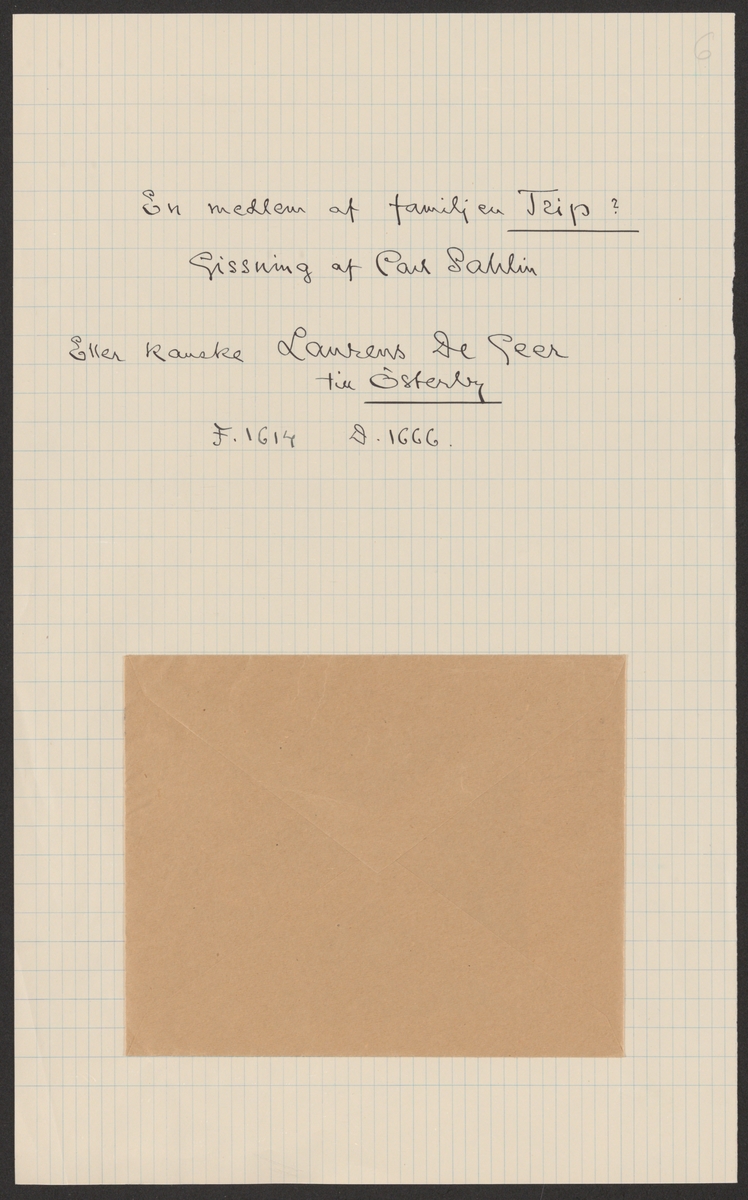 6
En medlem af familjen Trip?
Gissning af Carl Sahlin
Eller kanske Laurens De Geer
till Österby
F. 1614 D. 1666.